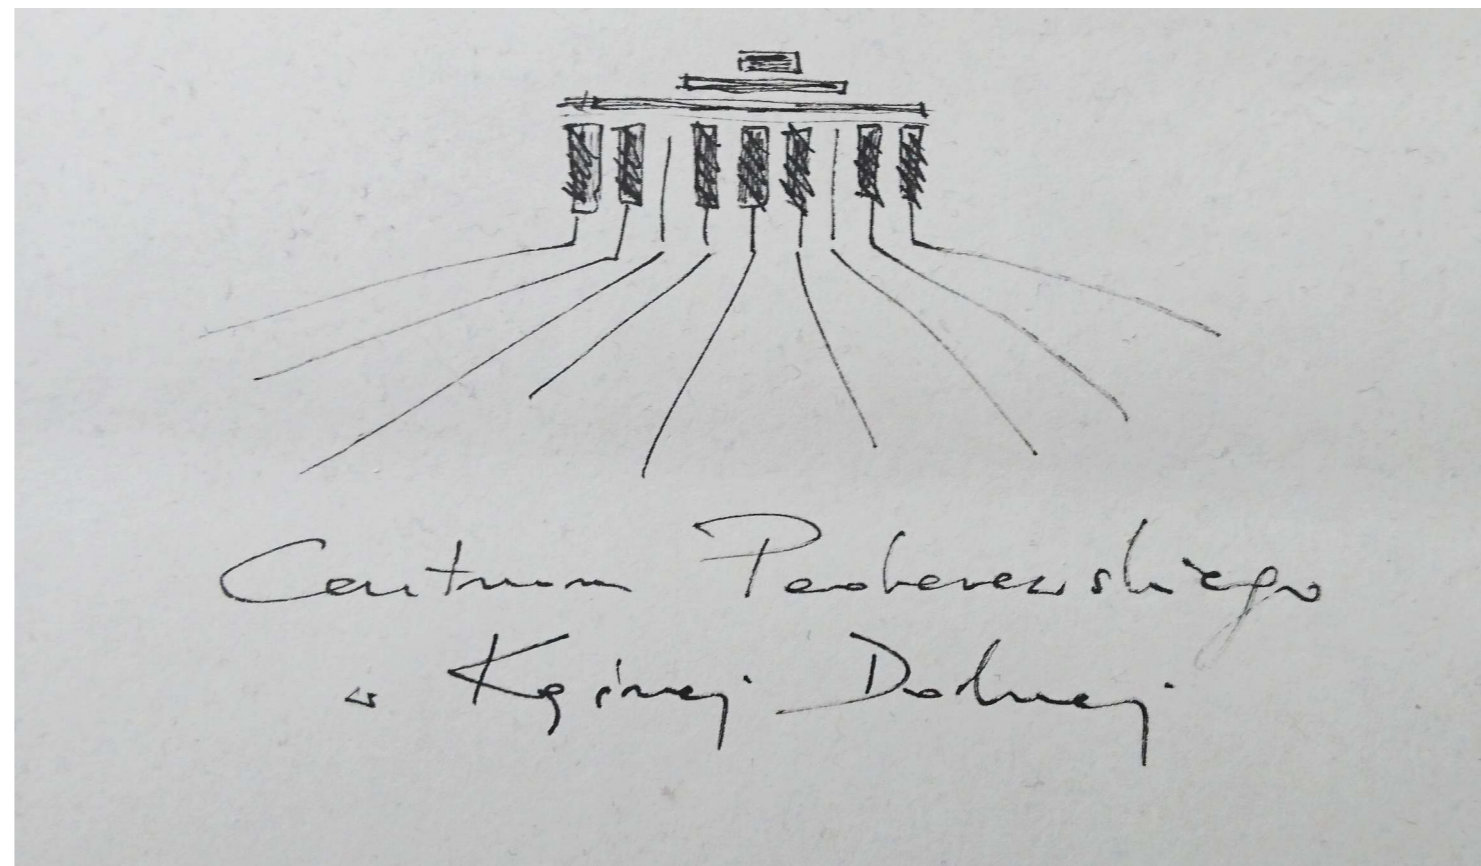 Centrum Paderewskiego
w Kąśnej Dolnej